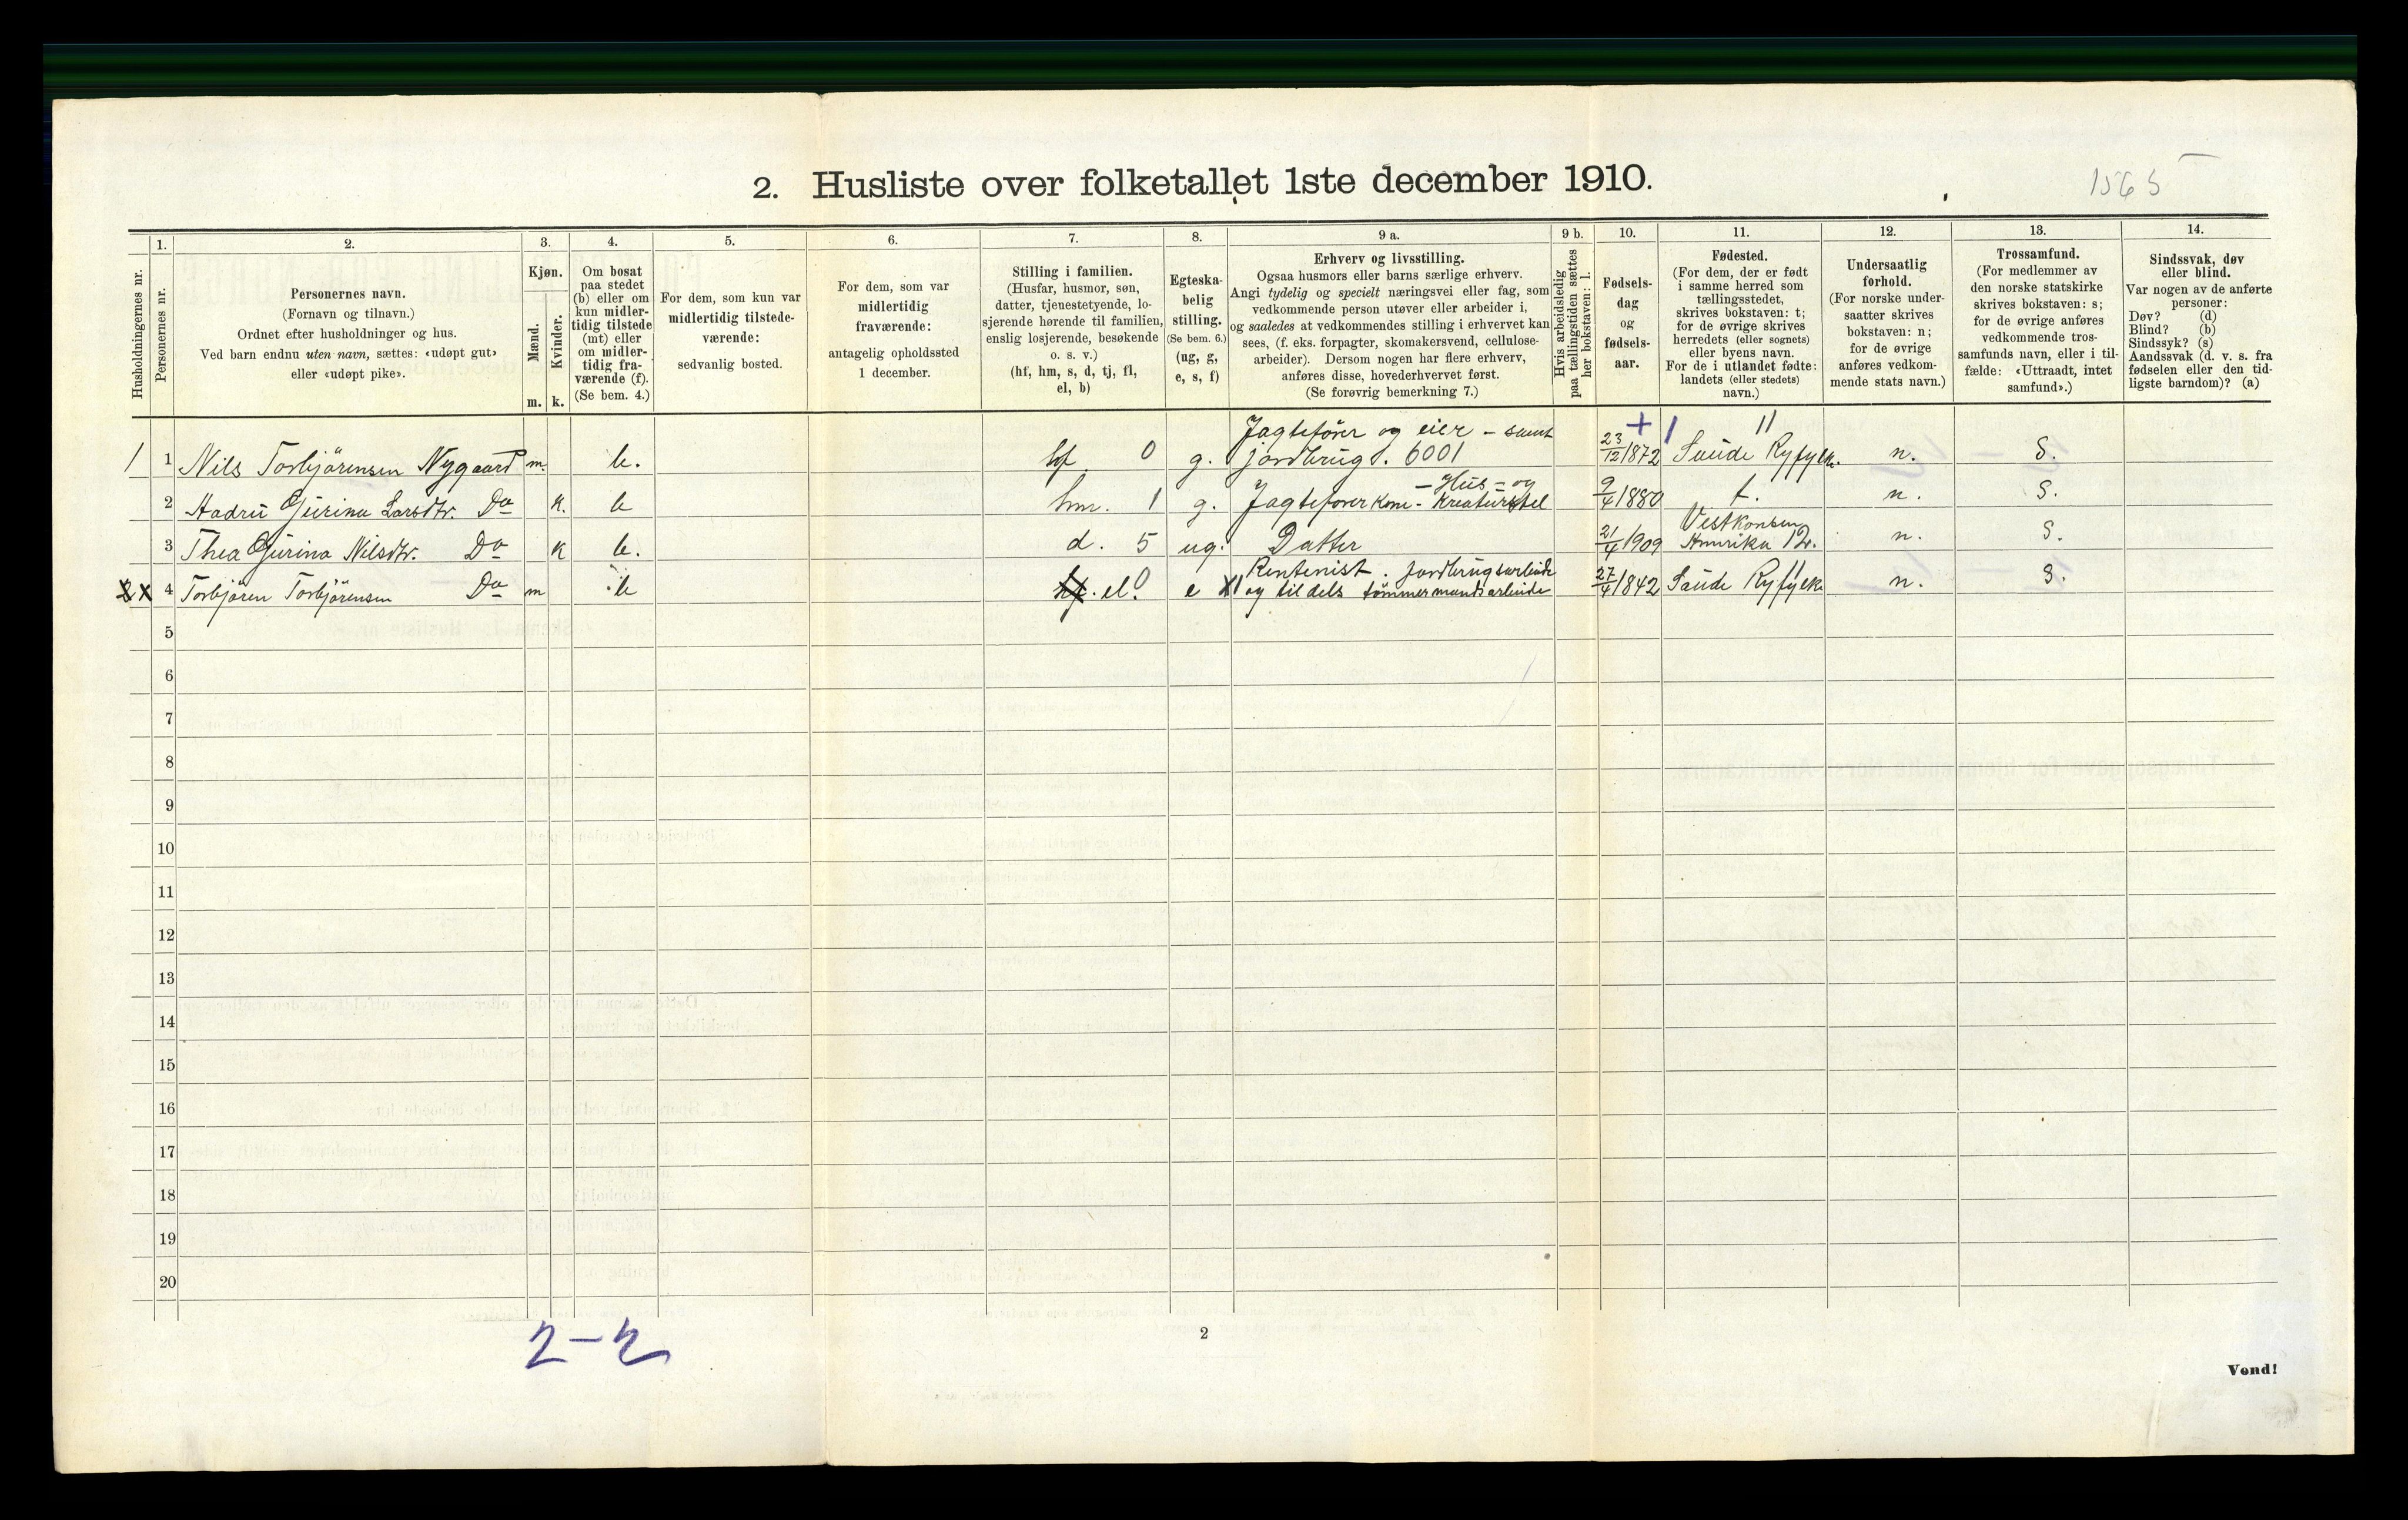 2. Husliste over folketallet 1ste december 1910.
1565
Husholdningernes nr.
1.
Personernes nr.
2.
Personernes navn.
(Fornavn og tilnavn.)
Ordnet efter husholdninger og hus.
Ved barn endnu uten navn, sættes: «udøpt gut»
eller «udøpt pike».
3.
Kjøn.
Mænd.
Kvinder.
m. k.
4.
Om bosat
paa stedet
(b) eller om
kun midler-
tidig tilstede
(mt) eller
om midler-
tidig fra-
værende (f).
(Se bem. 4.)
5.
For dem, som kun var
midlertidig tilstede-
værende:
sedvanlig bosted.
6.
For dem, som var
midlertidig
fraværende:
antagelig opholdssted
1 december.
7.
Stilling i familien.
(Husfar, husmor, søn,
datter, tjenestetyende, lo-
sjerende hørende til familien,
enslig losjerende, besøkende
o. s. v.)
(hf, hm, s, d, tj, fl,
el, b)
8.
Egteska-
belig
stilling.
(Se bem. 6.)
(ug, g,
e, s, f)
9 a.
Erhverv og livsstilling.
Ogsaa husmors eller barns særlige erhverv.
Angi tydelig og specielt næringsvei eller fag, som
vedkommende person utøver eller arbeider i,
og saaledes at vedkommendes stilling i erhvervet kan
sees, (f. eks. forpagter, skomakersvend, cellulose-
arbeider). Dersom nogen har flere erhverv,
anføres disse, hovederhvervet først.
(Se forøvrig bemerkning 7.)
9 b.
Hvis arbeidsledig
paa tællingstiden sættes
her bokstaven: l.
10.
Fødsels-
dag
og
fødsels-
aar.
11.
Fødested.
(For dem, der er født
i samme herred som
tællingsstedet,
skrives bokstaven: t;
for de øvrige skrives
herredets (eller sognets)
eller byens navn.
For de i utlandet fødte:
landets (eller stedets)
navn.)
12.
Undersaatlig
forhold.
(For norske under-
saatter skrives
bokstaven: n;
for de øvrige
anføres vedkom-
mende stats navn.)
13.
Trossamfund.
(For medlemmer av
den norske statskirke
skrives bokstaven: s;
for de øvrige anføres
vedkommende tros-
samfunds navn, eller i til-
fælde: «Uttraadt, intet
samfund».)
14.
Sindssvak, døv
eller blind.
Var nogen av de anførte
personer:
Døv? (d)
Blind? (b)
Sindssyk? (s)
Aandssvak (d. v. s. fra
fødselen eller den tid-
ligste barndom)? (a)
Jagtefører og eier - samt
1 1 Nils Torbjörensen Nygaard m. b. hf. 0 g. jordbrug. 6001 23/12 1872 Saude Ryfylk. n. S.
- Hus- og
2 Gurina Larsdtr. Do k. b hm. 1 g. Jagteførerkone - Kreaturstel 9/4 1880 t. n. S.
3 Thea Gurina Nilsdtr. Do k b. d. 5 ug. Datter 21/4 1909 Amerika 12. n. S.
Rentenist. Jordbrugsarbeide
2 x 4 Torbjören Torbjörensen Do m b hf. el. 0 e og tildels tømmermandsarbeide 27/4 1842 Saude Ryfylk n. S.
5
6
7
8
9
10
11
12
13
14
15
16
17
18
19
20
2-2
2
Vend!